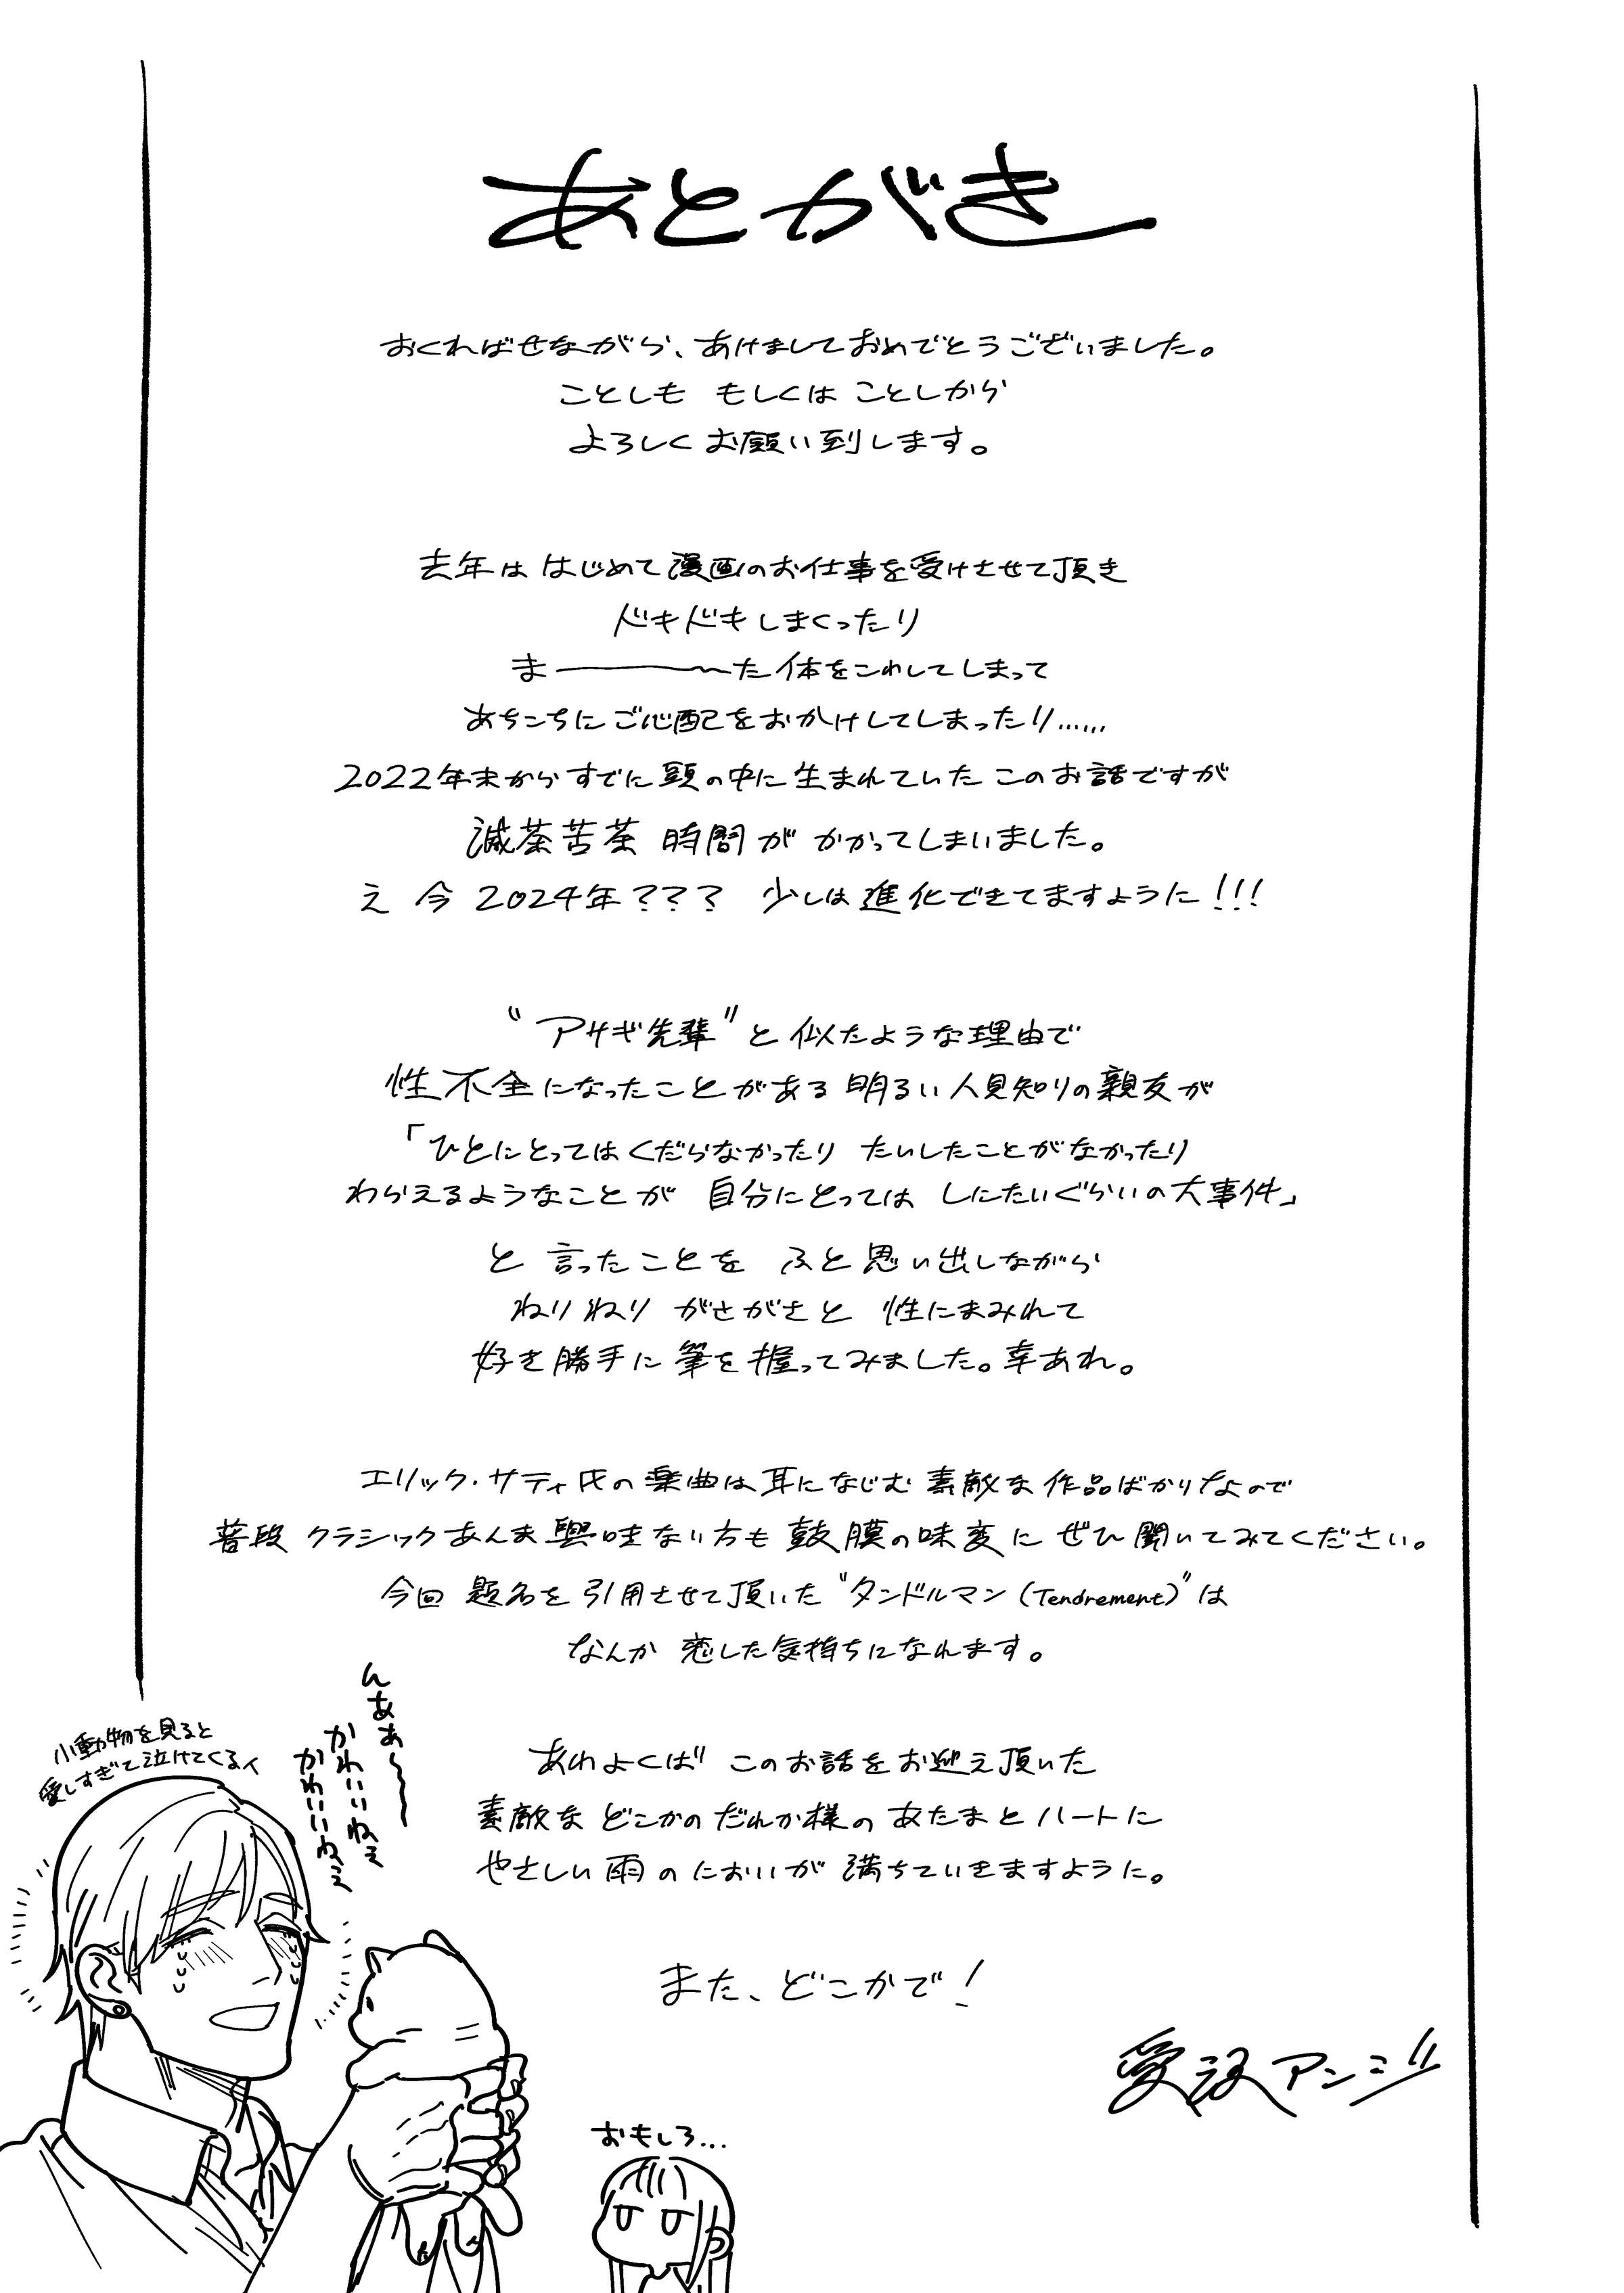 あとがき
おくればせながら、あけましておめでとうございました。
ことしも もしくは ことしから
よろしくお願い到します。
去年は はじめて漫画のお仕事を受けさせて頂き
ドキドキしまくったり
ま――――〜た体をこわしてしまって
あちこちにご心配をおかけしてしまったり……
2022年末からすでに頭の中に生まれていたこのお話ですが
滅茶苦茶 時間が かかってしまいました。
え 今 2024年??? 少しは進化できてますように!!!
“アサギ先輩”と似たような理由で
性不全になったことがある明るい人見知りの親友が
「ひとにとってはくだらなかったり たいしたことがなかったり
わらえるようなことが 自分にとっては しにたいぐらいの大事件」
と 言ったことを ふと思い出しながら
ねりねり がさがさと 性にまみれて
好き勝手に筆を握ってみました。幸あれ。
エリック・サティ氏の楽曲は耳になじむ素敵な作品ばかりなので
普段 クラシックあんま興味ない方も鼓膜の味変に ぜひ聞いてみてください。
今回 題名を引用させて頂いた“タンドルマン(Tendrement)”は
なんか 恋した気持ちになれます。
あわよくば このお話をお迎え頂いた
素敵な どこかのだれか様の あたまとハートに
やさしい雨のにおいが満ちていきますように。
また、どこかで!
愛没アンジ
小動物を見ると
愛しすぎて泣けてくるイ
んあぁ〜
かわいいねぇ
かわいいねぇ
おもしろ…